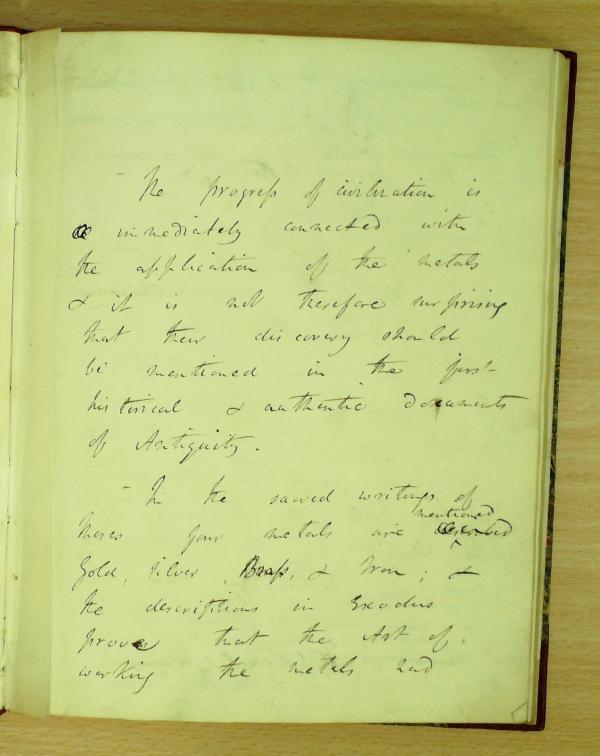 The progress of civilization is
immediately connected with
the application of the metals
& it is not therefore surprising
that their discovery should
be mentioned in the first
historical & authentic documents
of Antiquity.
In the sacred writings of
mentioned
Moses four metals are described
Gold, Silver, Brass, & Iron; &
the descriptions in Exodus
prove that the Art of
working the metals had